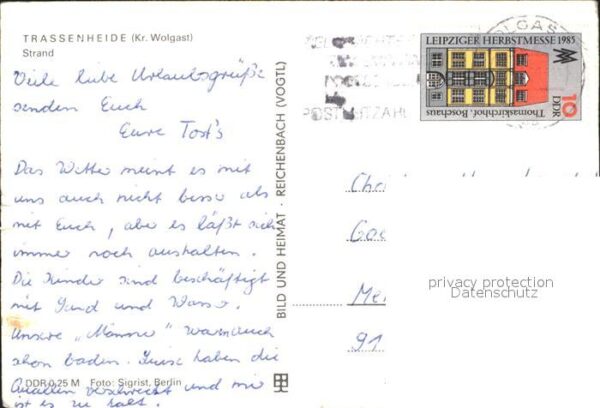 TRASSENHEIDE (Kr. Wolgast)
Strand
Viele liebe Urlaubsgrüße
senden Euch
Eure Tost's
Das Wetter meint es mit
uns auch nicht besser als
mit Euch, aber es läßt sich
immer noch aushalten.
Die Kinder sind beschäftigt
mit Sand und Wasser.
Unsere „Männer" waren auch
schon baden. Luise haben die
Quallen verscheucht und mir
ist es zu kalt.
DDR 0,25 M Foto: Sigrist, Berlin
BILD UND HEIMAT · REICHENBACH (VOGTL)
POSTLEITZAHL
OLGAS
LEIPZIGER HERBSTMESSE 1985
Thomaskirchhof, Boschaus
10
DDR
91
privacy protection
Datenschutz